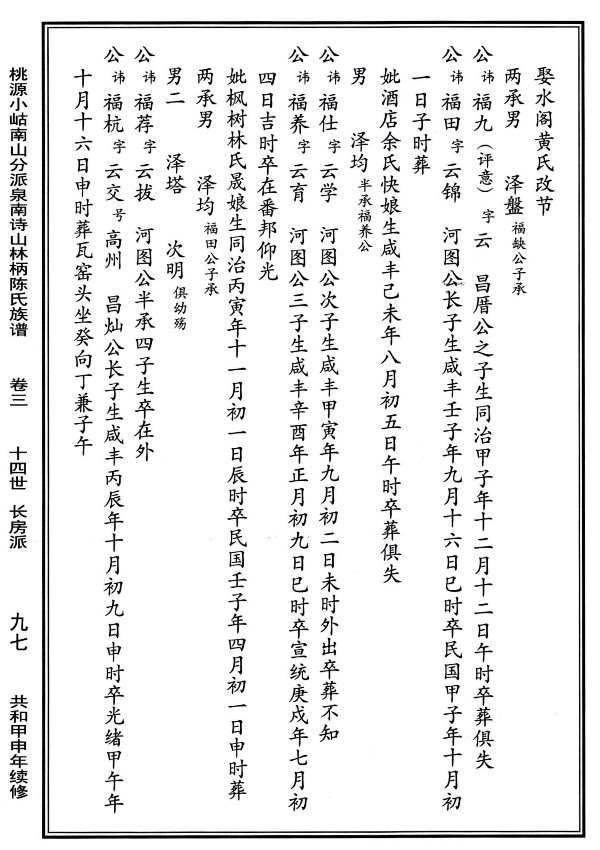 娶水阁黄氏改节
两承男 泽盤 福缺公子承
公讳福九(评意)字云 昌厝公之子生同治甲子年十二月十二日午时卒葬俱失
公讳福田字云锦 河图公长子生咸丰壬子年九月十六日巳时卒民国甲子年十月初
一日子时葬
妣酒店余氏快娘生咸丰己未年八月初五日午时卒葬俱失
男 泽均 半承福养公
公讳福仕字云学 河图公次子生咸丰甲寅年九月初二日未时外出卒葬不知
公讳福养字云育 河图公三子生咸丰辛酉年正月初九日巳时卒宣统庚戌年七月初
四日吉时卒在番邦仰光
妣枫树林氏晟娘生同治丙寅年十一月初一日辰时卒民国壬子年四月初一日申时葬
两承男 泽均 福田公子承
男二 泽塔 次明 俱幼殇
公讳福荐字云拔 河图公半承四子生卒在外
公讳福杭字云交号高州 昌灿公长子生咸丰丙辰年十月初九日申时卒光绪甲午年
十月十六日申时葬瓦窑头坐癸向丁兼子午
桃源小岵南山分派泉南诗山林柄陈氏族谱 卷三 十四世 长房派 九七 共和甲申年续修